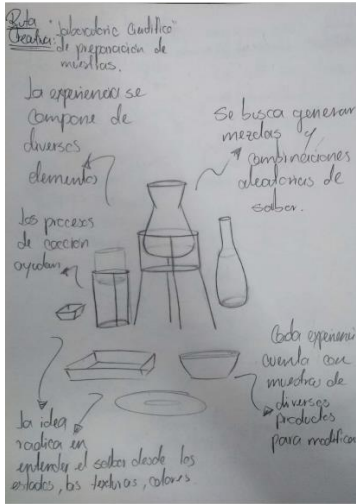 Ruta "laboratorio Científico"
Creativa: de preparación de
muestras.
la experiencia se
compone de
diversos
elementos
Se busca generar
mezclas y
combinaciones
aleatorias de
sabor.
los procesos
de cocción
ayudan
Cada experiencia
cuenta con
muestras de
diversos
productos
para modificar
la idea
radica en
entender el sabor desde los
estados, las texturas, colores.